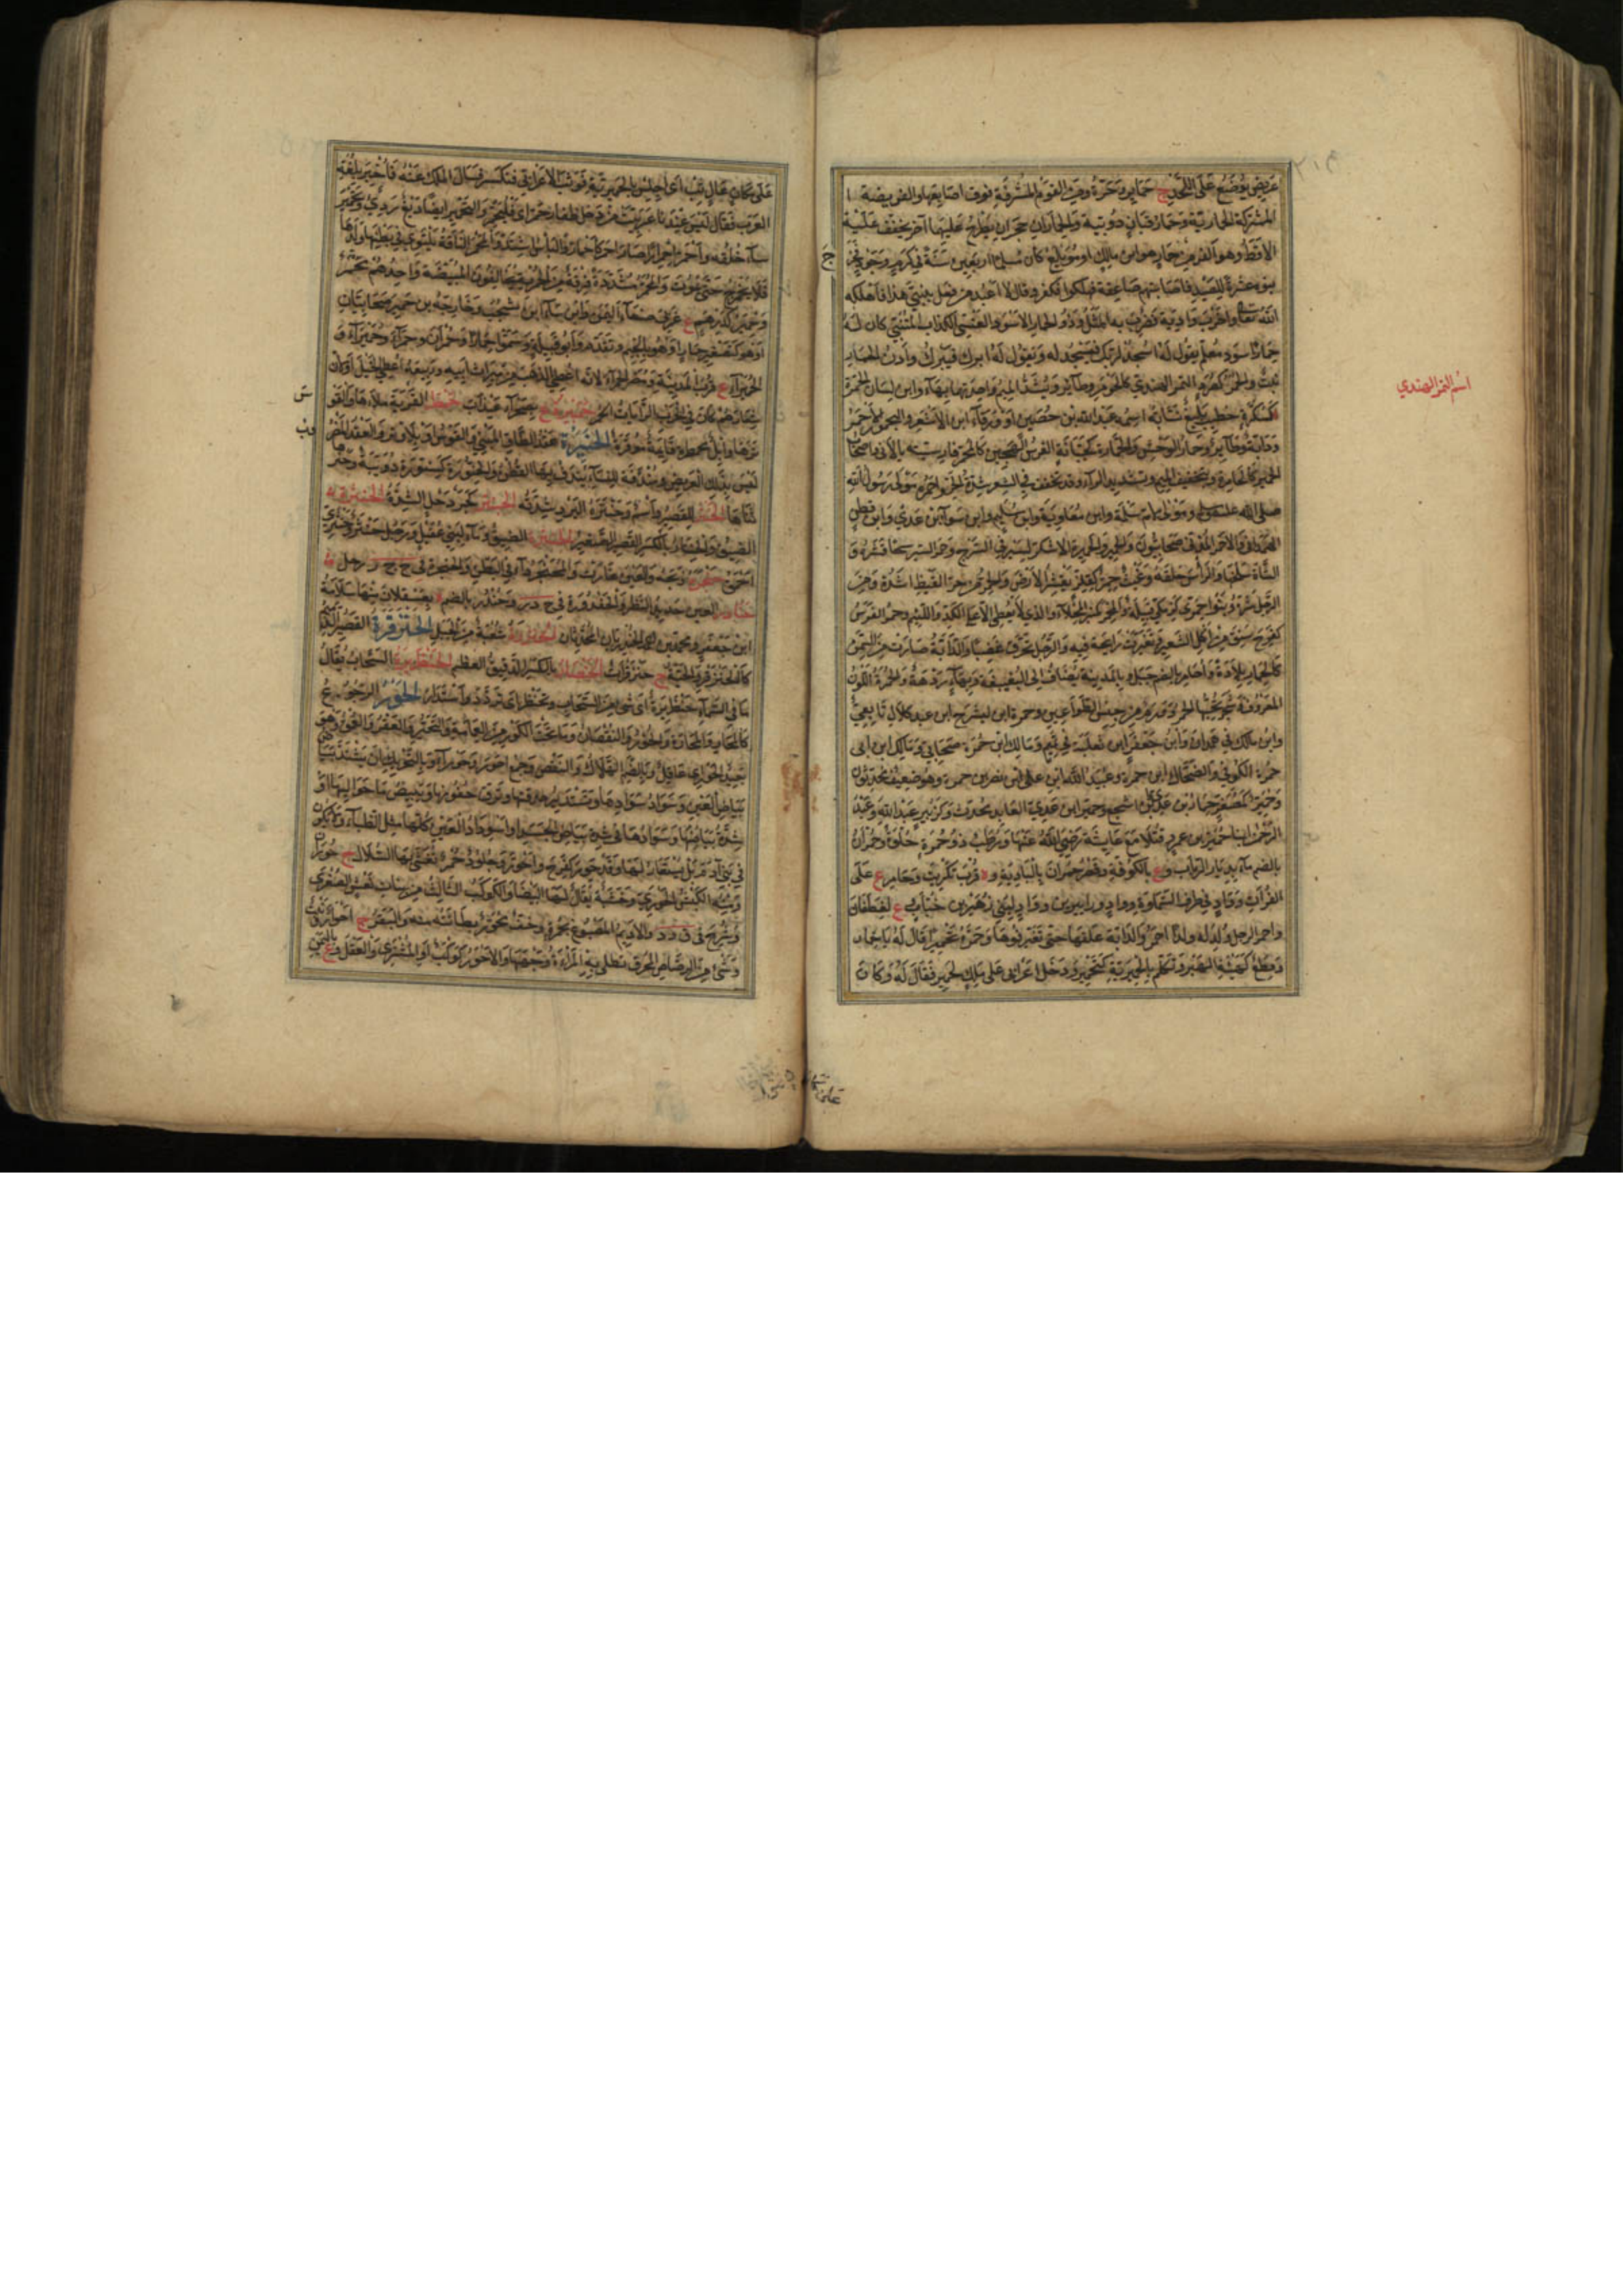 عريض يوضع على اللحد ج حماير وحمرة ومن القوم المشرفة فوق اصابعها والفريضة
المشتركة الحمارية وحمار قبان دويبة والحماران حجران يطرح عليهما آخر يجفف عليه
الاقط وهو اكفر من حمار هو ابن مالك او مويلع كان مسلما اربعين سنة في كرم وجود فخرج
بنوه عشرة للصيد فاصابتهم صاعقة فهلكوا فكفر وقال لا اعبد من فعل ببني هذا فاهلكه
الله تعالى واخرب واديه فضرب به المثل وذو الحمار الاسود العنسي الكذاب المتنبي كان له
حمار اسود معلم يقول له اسجد لربك فيسجد له ويقول له ابرك فيبرك واذن الحمار
نبت والحمر كصرد التمر الهندي كالحومر وطائر وتشدد الميم واحدتهما بهاء وابن لسان الحمرة
كسكرة خطيب بليغ نسابة اسمه عبد الله بن حصين او ورقاء ابن الاشعر واليحمور الاحمر
ودابة وطائر وحمار الوحش والحمارة كجبانة الفرس الهجين كالمحمر فارسيته بالاني اصحاب
الحمير كالحامرة وبتخفيف الميم وتشديد الراء وقد تخفف في الشعر شدة الحر واحمر مولى رسول الله
صلى الله عليه وسلم ومولى لام سلمة وابن معاوية وابن سليم وابن سواء بن عدي وابن قطن
الهمداني والاحمر المدني صحابيون والحمير والحميرة الاشكز لسير في السرج وحمر السير سحا قشره و
الشاة سلخها والرأس حلقه وغيث حمر كفلز يقشر الارض والحمر من حر القيظ اشده ومن
الرجل شره وبنو حمرى كزمكى قبيلة والمحمر كمنبر المحلاء والذي لا يعطي الا على الكد واللئيم وحمر الفرس
كفرح سنق من اكل الشعير وتغيرت رائحة فيه والرجل تحرق غضبا والدابة صارت من السمن
كالحمار بلادة واحامر بالضم جبل وبالمدينة يضاف الى البغيبغة وبهاء ردهة والحمرة اللون
المعروف وشجرة تحبها الحمر وورم من جنس الطواعين وحمرة ابن ليشرح ابن عبد كلال تابعي
وابن مالك في همدان وابن جعفر ابن ثعلبة في تميم ومالك ابن حمرة صحابي ومالك ابن ابي
حمرة الكوفي والضحاك ابن حمرة وعبد الله ابن علي ابن نصر بن حمرة وهو ضعيف محدثون
وحمير كمصغر حمار بن عدي وابن اشجع وحمير ابن عدي العابد محدث وكزبير عبد الله وعبد
الرحمن ابنا حمير بن عمرو قتلا مع عايشة رضي الله عنها ورطب ذو حمرة حلوة وحمران
بالضم ماء بديار الرباب وع بالكوفة وقصر حمران بالبادية وة قرب تكريت وحامر ع على
الفرات وواد في طرف السماوة وواد وراء يبرين وواد لبني زهير بن جناب وع لغطفان
واحمر الرجل ولد له ولد احمر والدابة علفها حتى تغير فوها وحمره تحميرا قال له يا حمار
وقطع كهيئة الهبر وتكلم بالحميرية كتحمير ودخل اعرابي على ملك لحمير فقال له وكان
اسم التمر الهندي
ج
على مكان عال ثب اى اجلس بالحميرية فوثب الاعرابي فتكسر فسال الملك عنه فاخبر بلغة
العرب فقال ليس عندنا عربيت من دخل ظفار حمر اى فليحمر والتحمير ايضا دبغ ردي وتحمير
ساء خلقه واحمر احمرارا صار احمر كاحمار والبأس اشتد والمحمر الناقة يلتوي في بطنها ولدها
فلا يخرج حتى تموت والمحمرة مشددة فرقة من الخرمية يخالفون المبيضة واحدهم محمر
وحمير كدرهم ع غربي صنعاء اليمن وابن سبا ابن يشجب وخارجة بن حمير صحابيان
او هو كتصغير حمار او هو بالجيم وتقدم وابو قبيلة وسموا حمارا وحمران وحمراء وحميراء و
الحميراء ع قرب المدينة ومضر الحمراء لانه اعطي الذهب من ميراث ابيه وربيعة اعطي الخيل او لان
شعارهم كان في الحرب الرايات الحمر ع بصحراء عيذاب القربة ملاءها والقوس
وترها وابل محمطرة قائمة موقرة الحنيرة عقد الطاق المبني والقوس او بلا وتر والعقد المضروب
ليس بذلك العريض ومندفة للنساء يندف بها القطن والحنورة كسنورة دويبة وحنر
ثناها القصير واسم وحنترة البرد شدته كجردحل الشدة
الضيق والحنتار بالكسر القصير الصغير الضيق وماء لبني عقيل ورجل حنثر وحنثري
احمق ذبحه والعين غارت والمحنجر داء في البطن والحنجرة في ح ج ر رجل
العين حديد النظر والحندورة في ح د ر وحندر بالضم ة بعسقلان منها سلامة
ابن جعفر ومحمد بن احمد الحندريان المحدثان شعبة من الجبل الحنزقرة القصير الدميم
كالحنزقر والحية ج حنزقرات بالكسر الدقيق العظم السحاب يقال
ما في السماء حنظريرة اى شيء من السحاب وتحنظر اى تردد واستدار الحور الرجوع
كالمحار والمحارة والحؤور والنقصان وما تحت الكور من العمامة والتحير والعقر والعمق وهو
بعيد الحور اى عاقل وبالضم الهلاك والنقص وجمع احور وحوراء وبالتحريك ان يشتد بياض
بياض العين وسواد سوادها وتستدير حدقتها وترق جفونها ويبيض ما حواليها او
شدة بياضها وسوادها في شدة بياض الجسد او اسوداد العين كلها مثل الظباء ولا يكون
في بني آدم بل يستعار لها وقد حور كفرح واحور وجلود حمر يغشى بها السلال ج حوران
ومنه الكبش الحوري وخشبة يقال لها البيضاء والكوكب الثالث من بنات نعش الصغرى
وشرح في ق و د والاديم المصبوغ بحمرة وخف محور بطانته منه والبقر ج احوار ونبت
وشيء من الرصاص المحرق تطلي به المراة وجهها والاحور كوكب او المشترى والعقل وع باليمن